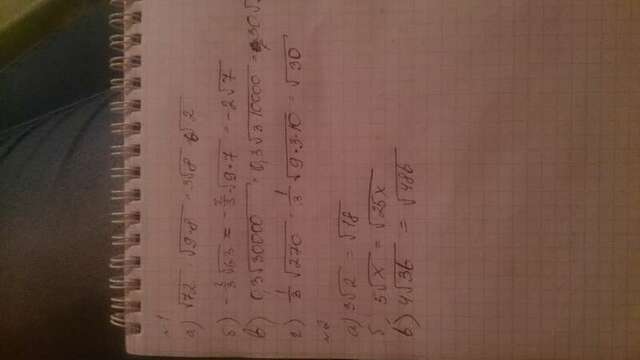 №1
а) √72 = √9·8 = 3√8 = 6√2
б) -2/3√63 = -2/3·√9·7 = -2√7
в) 0,3√30000 = 0,3√3 10000 = 30√
г) 1/3√270 = 1/3·√9·3·10 = √30
№2
а) 3√2 = √18
б 5√x = √25x
в) 4√3b = √48b